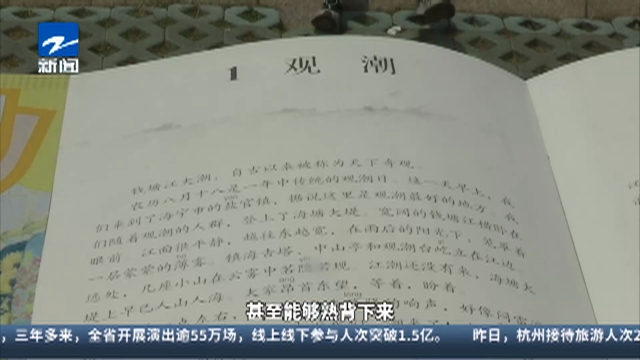 新闻
1 观 潮
钱塘江大潮，自古以来被称为天下奇观。
农历八月十八是一年中传统的观潮日。这一天早上，我
们来到了海宁市的盐官镇，据说这里是观潮最好的地方。我
们随着观潮的人群，登上了海塘大堤。宽阔的钱塘江横卧在
眼前。江面很平静，越往东越宽，在雨后的阳光下，笼罩着
一层蒙蒙的薄雾。镇海古塔、中山亭和观潮台屹立在江边。
远处，几座小山在云雾中若隐若现。江潮还没有来，海塘大
堤上早已人山人海。大家昂首东望，等着，盼着
的响声，好像闷雷
甚至能够熟背下来
，三年多来，全省开展演出逾55万场，线上线下参与人次突破1.5亿。 昨日，杭州接待旅游人次